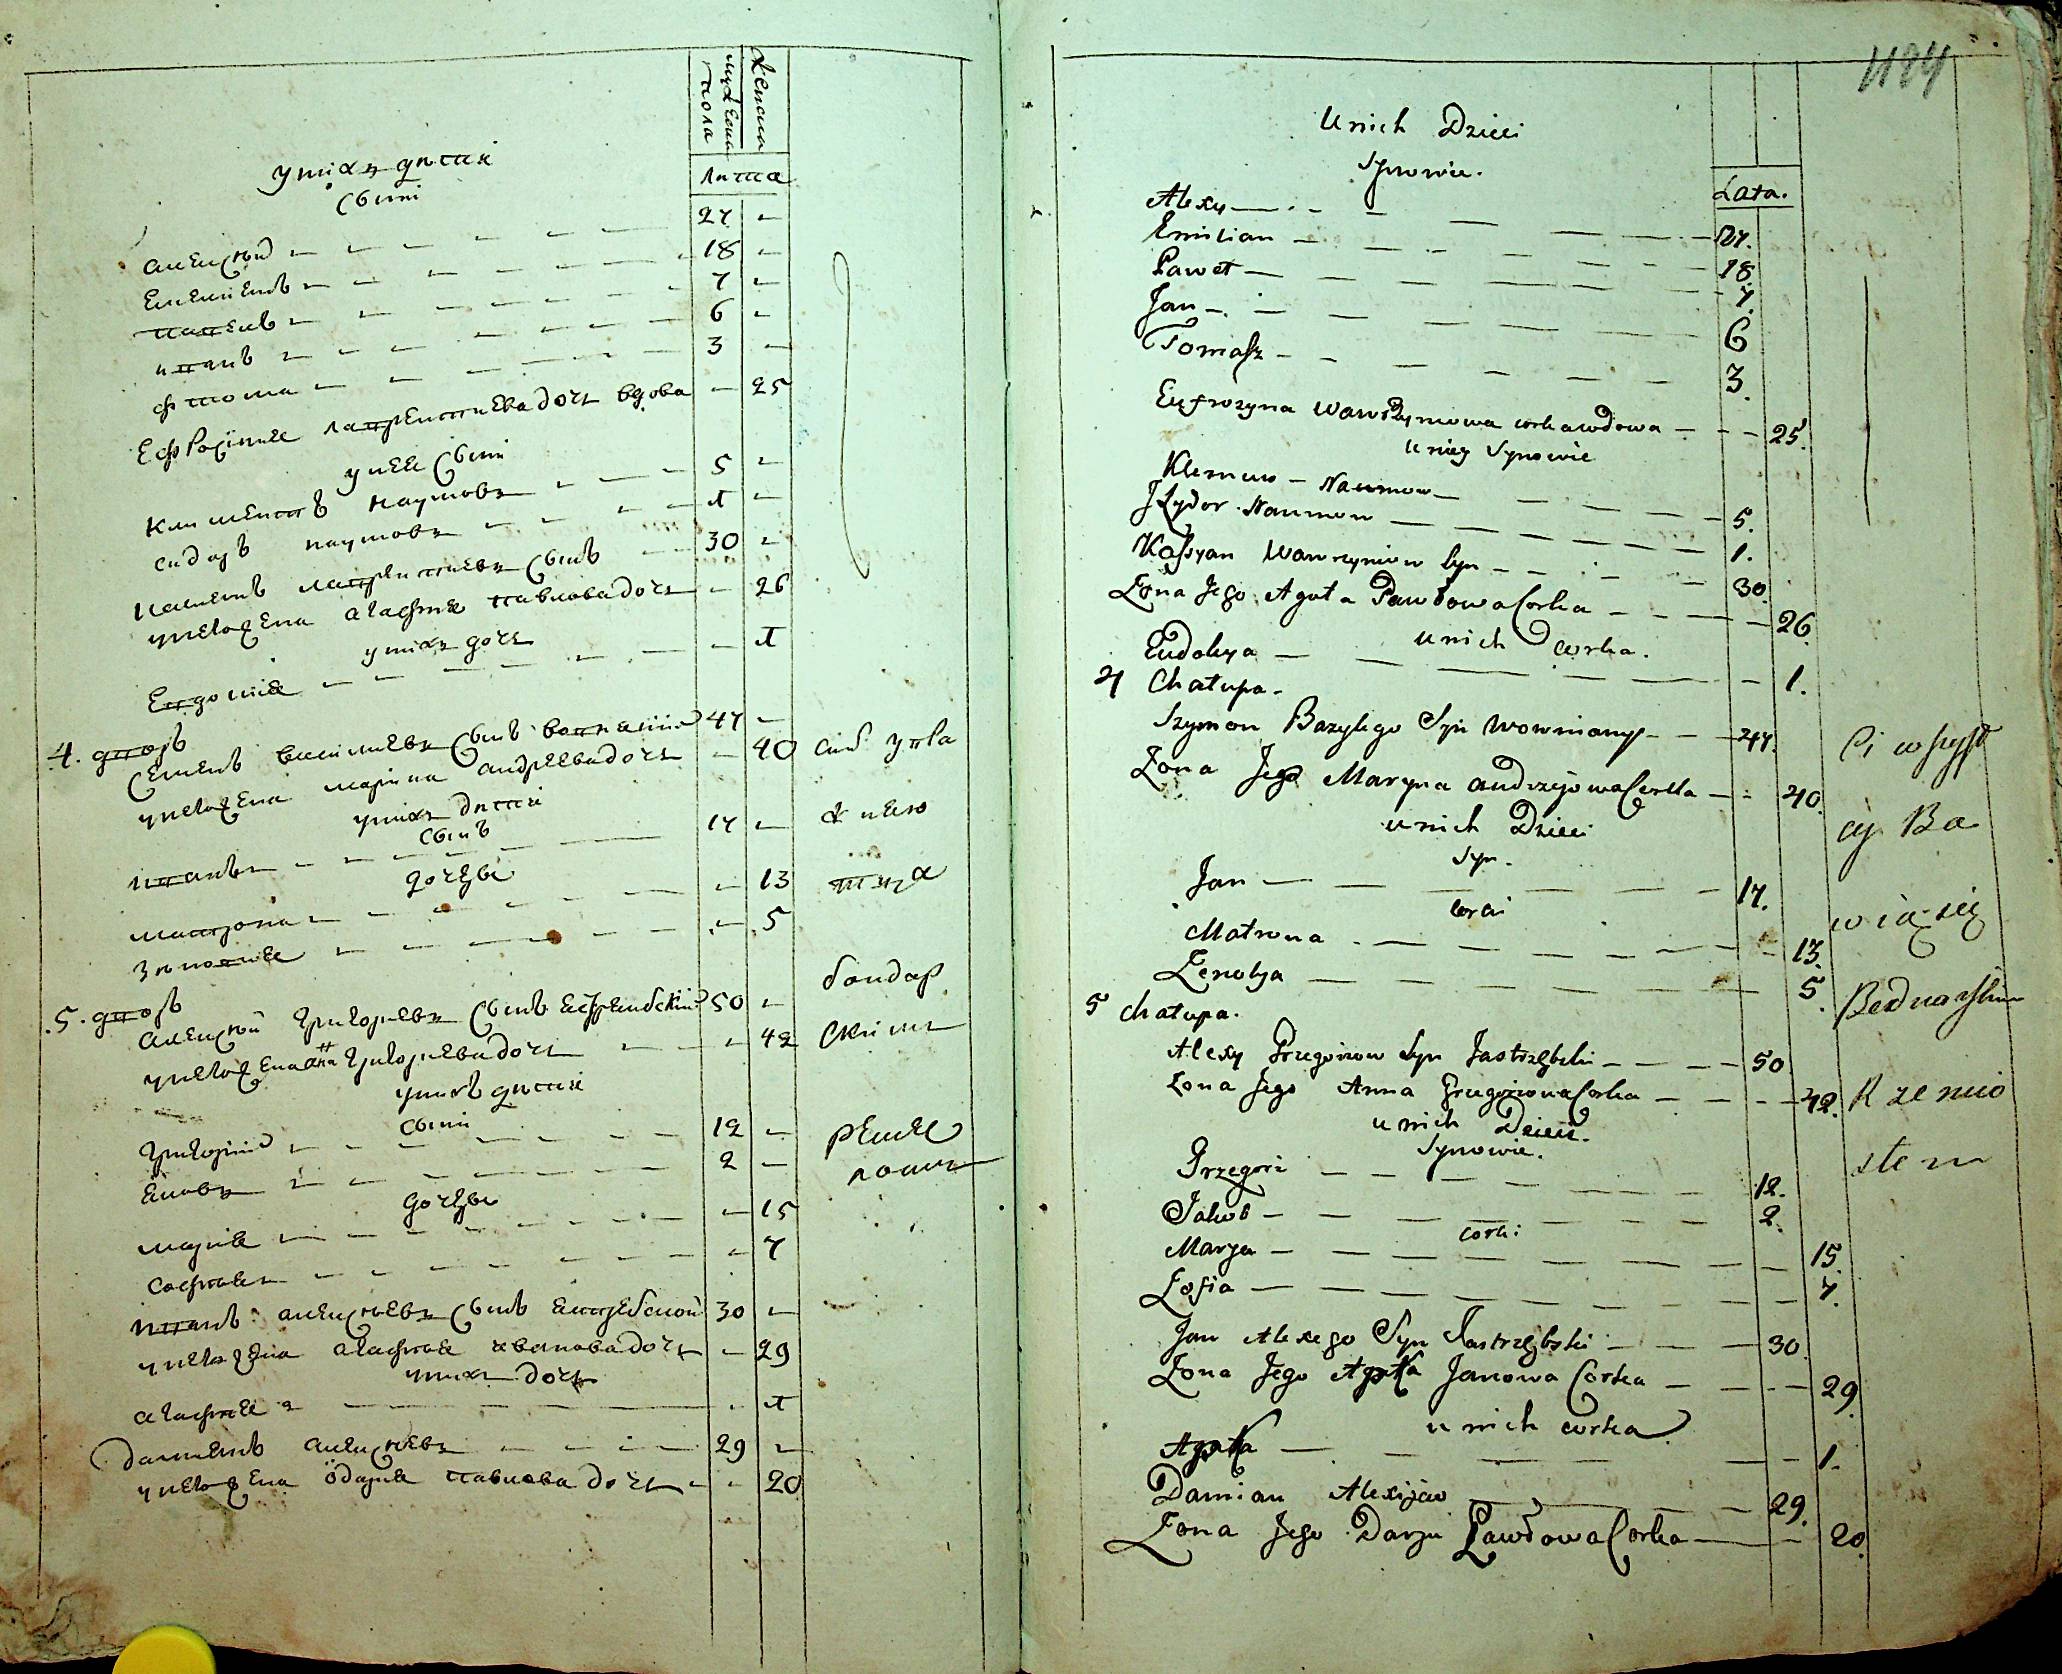 мужеска пола
женска
лѣта
у нихъ дѣти
сыни
алексѣй — 27 —
Емелянъ — 18 —
павелъ — 7 —
иванъ — 6 —
фтома — 3 —
Ефросинiя лаврентиева дочь вдова — 25
у нее сыни
климентъ наумовъ — 5 —
сидоръ наумовъ — 1 —
лаврентиевъ сынъ — 30 —
у него жена агафия павлова дочь — 26
у нихъ дочь
Евдокия — 1
4. дворъ
Семенъ василиевъ сынъ 47 —
у него жена марина андреева дочь — 40
у нихъ дѣти
сынъ
иванъ — 17 —
дочери
матрона — 13
зѣновия — 5
5. дворъ
алексѣй григориевъ сынъ 50 —
у него жена анна григориева дочь — 42
у нихъ дѣти
сыни
григорий — 12 —
яковъ — 2 —
дочери
мария — 15
софия — 7
иванъ алексѣевъ сынъ 30 —
у него жена агафия иванова дочь — 29
у нихъ дочь
агафия — 1
алексѣевъ — 29 —
у него жена одария павлова дочь — 20
бондар
ским
реме
слом
1184
U nich Dzieci
Synowie.
Lata.
Alexy — 27.
Emilian — 18
Paweł — 7.
Jan — 6
Tomasz — 3.
Eufrozyna Wawrzynowa corka wdowa — 25.
u niey Synowie
Klemens — Naumow — 5.
Jzydor Naumow — 1.
Kassyan Wawrzyniow Syn — 30
Zona Jego Agata Pawłowa Corka — 26
u nich Corka.
Eudokya — 1.
4 Chałupa.
Szymon Bazylego Syn Wowniany — 47.
Zona Jego Maryna Andrzejowa Corka — 40
u nich Dzieci
Syn.
Jan — 17.
Corki
Matrona — 13.
Zenobya — 5.
5 Chałupa.
Alexy Grzegorzow Syn Jastrzębski — 50
Zona Jego Anna Grzegorzowa Corka — 42.
u nich Dzieci.
Synowie.
Grzegorz — 12.
Jakob — 2.
Corki
Marya — 15
Zofia — 7.
Jan Alexego Syn Jastrzębski — 30
Zona Jego Agata Janowa Corka — 29
u nich corka
Agata — 1.
Damian Alexijew — 29.
Zona Jego Darya Pawłowa Corka — 20
Ci wszyst
cy Ba
wią się
Bednarskim
Rzemio
słem